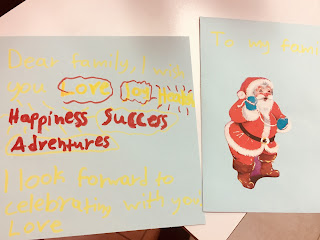 Dear family, I wish
you Love Joy
Happiness Success
Adventures
I look forward to
celebrating with you
Love
To my